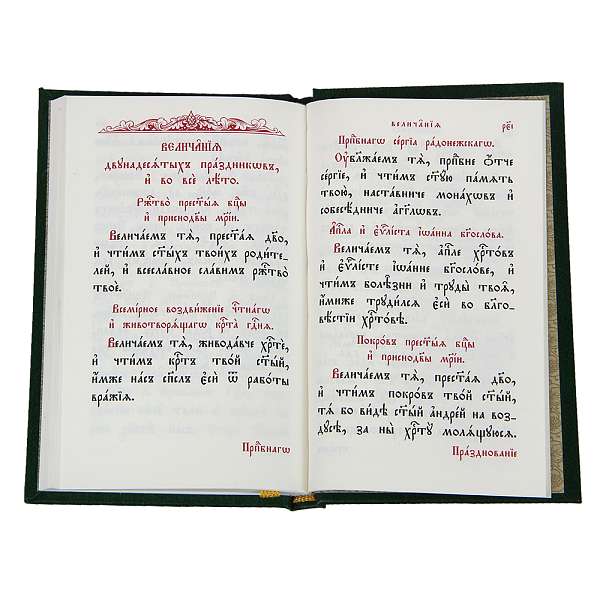 ВЕЛИЧА̑НІѦ
двꙋнадесѧ́тыхъ пра́здникѡвъ,
и҆ во всѐ лѣ́то.
Рж҃тво̀ прест҃ы́ѧ бц҃ы
и҆ приснодв҃ы мр҃і́и.
Велича́емъ тѧ̀, прест҃а́ѧ дв҃о,
и҆ чти́мъ ст҃ы́хъ твои́хъ роди́те_
лей, и҆ всесла́вное сла́вимъ рж҃тво̀
твоѐ.
Всемі́рное воздви́женіе чⷭ҇тна́гѡ
и҆ животворѧ́щагѡ крⷭ҇та̀ гдⷭ҇нѧ.
Велича́емъ тѧ̀, живода́вче хрⷭ҇тѐ,
и҆ чти́мъ крⷭ҇тъ тво́й ст҃ы́й,
и҆́мже на́съ сп҃слъ є҆сѝ ѿ рабо́ты
вра́жіѧ.
Прпⷣбнагѡ
велича̑нія
Прпⷣбнагѡ се́ргіа ра́донежскагѡ.
Оу҆блажа́емъ тѧ̀, прпⷣбне ѻ҆́тче
се́ргіе, и҆ чти́мъ ст҃ꙋ́ю па́мѧть
твою̀, наста́вниче мона́хѡвъ и҆
собесѣ́дниче а҆́гг҃лѡвъ.
А҆пⷭ҇ла и҆ є҆ѵⷢ҇лі́ста і҆ѡа́нна бг҃осло́ва.
Велича́емъ тѧ̀, а҆пⷭ҇ле хрⷭ҇то́въ
и҆ є҆ѵⷢ҇лі́сте і҆ѡа́нне бг҃осло́ве, и҆
чти́мъ болѣ̑зни и҆ трꙋды̀ твоѧ̑,
и҆́миже трꙋди́лсѧ є҆сѝ во бл҃го_
вѣ́стіи хрⷭ҇то́вѣ.
Покро́въ прест҃ы́ѧ бц҃ы
и҆ приснодв҃ы мр҃і́и.
Велича́емъ тѧ̀, прест҃а́ѧ дв҃о,
и҆ чти́мъ покро́въ тво́й ст҃ы́й,
тѧ́ бо ви́дѣ ст҃ы́й а҆ндре́й на воз_
дꙋ́сѣ, за ны̀ хрⷭ҇тꙋ̀ молѧ́щꙋюсѧ.
Пра́знованіе